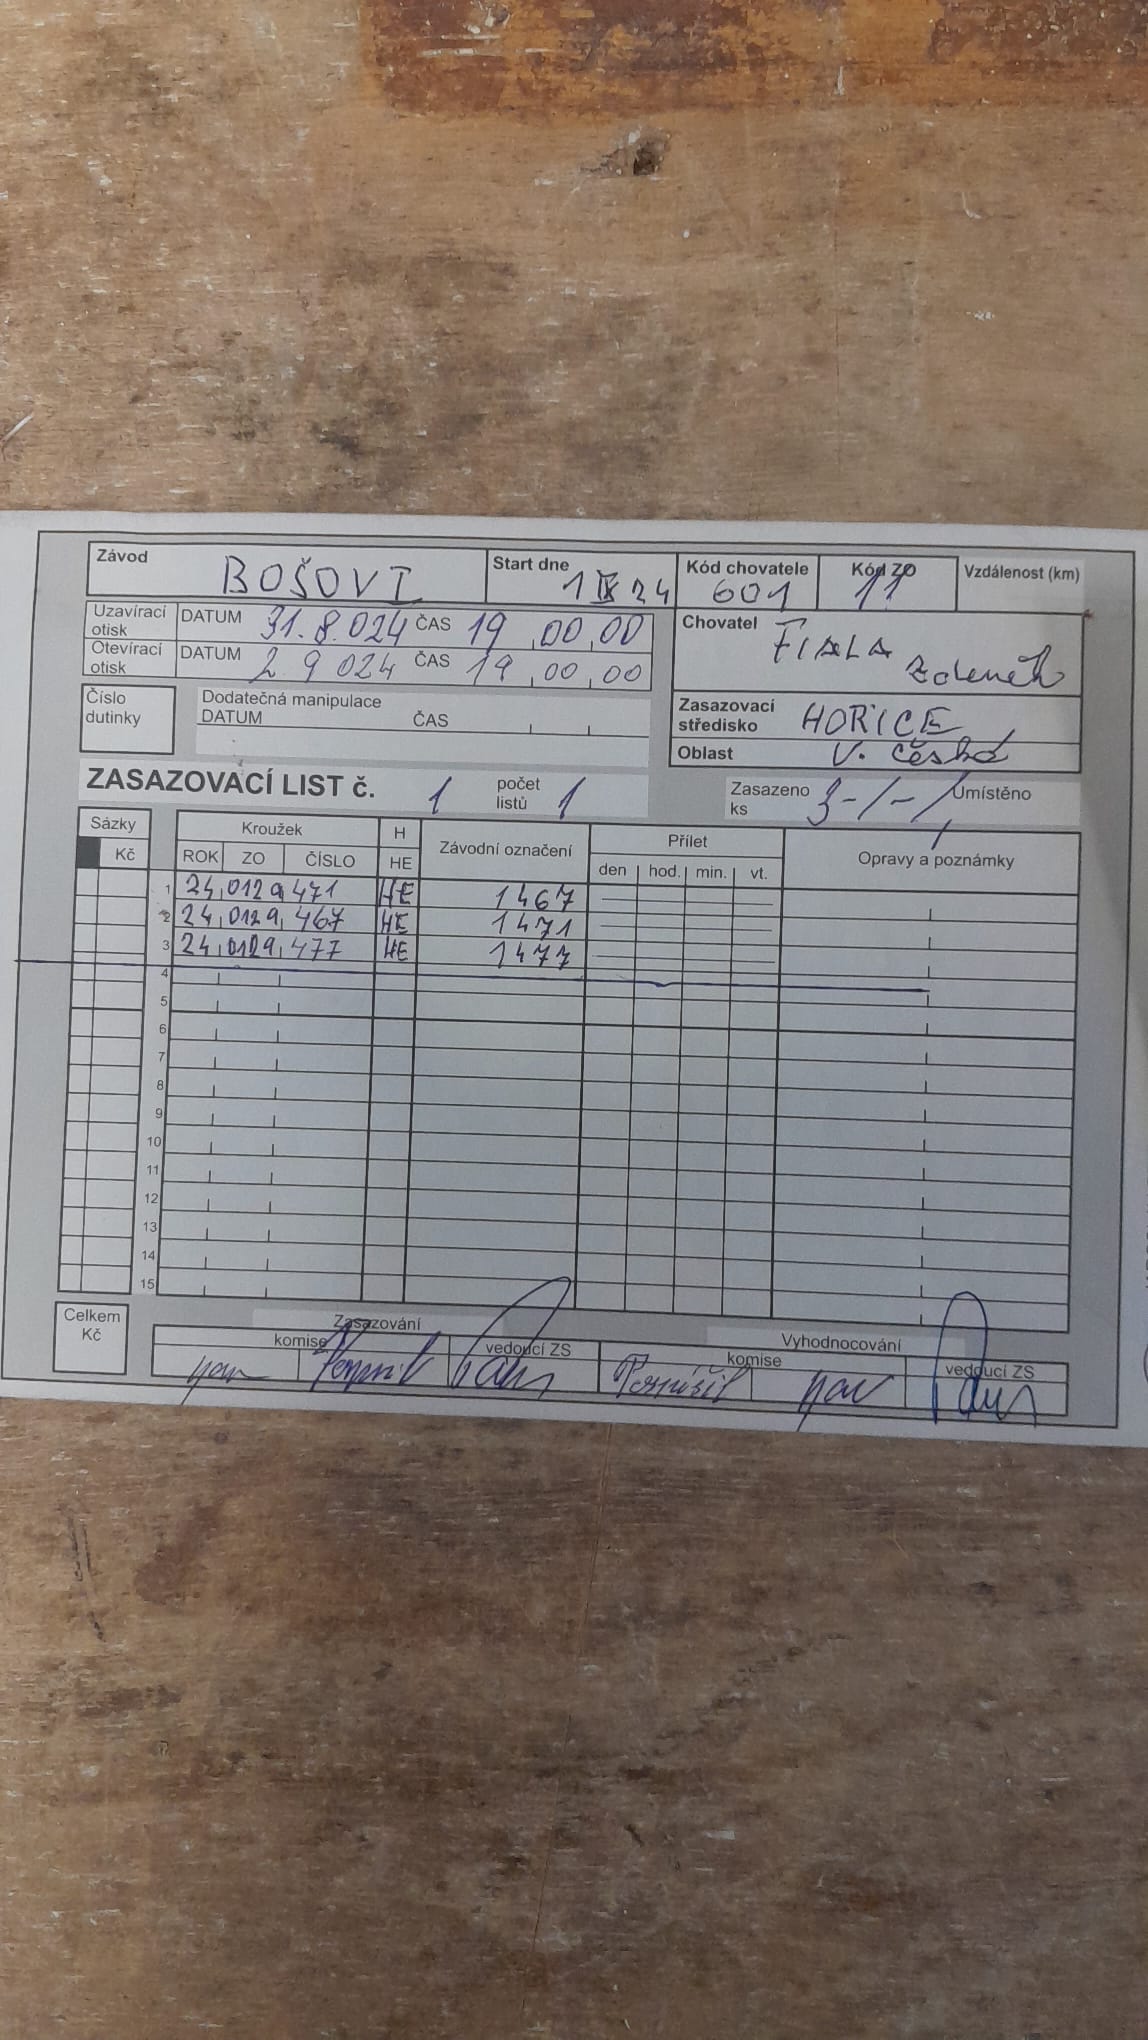 Závod BOŠOVI Start dne 1 IX 24 Kód chovatele 601 Kód ZO 11 Vzdálenost (km)
Uzavírací otisk DATUM 31.8.024 ČAS 19,00,00
Otevírací otisk DATUM 2.9 024 ČAS 19,00,00
Chovatel FIALA Zdeněk
Číslo dutinky
Dodatečná manipulace
DATUM ČAS
Zasazovací středisko HOŘICE
Oblast V. česká
ZASAZOVACÍ LIST č. 1 počet listů 1 Zasazeno ks 3-/-/ Umístěno
Sázky Kroužek H Závodní označení Přílet Opravy a poznámky
Kč ROK ZO ČÍSLO HE den hod. min. vt.
1 24,0129,471 HE 1467
2 24,0129,467 HE 1471
3 24,0129,477 HE 1477
4
5
6
7
8
9
10
11
12
13
14
15
Celkem Kč
Zasazování Vyhodnocování
komise vedoucí ZS komise vedoucí ZS
Pospíšil